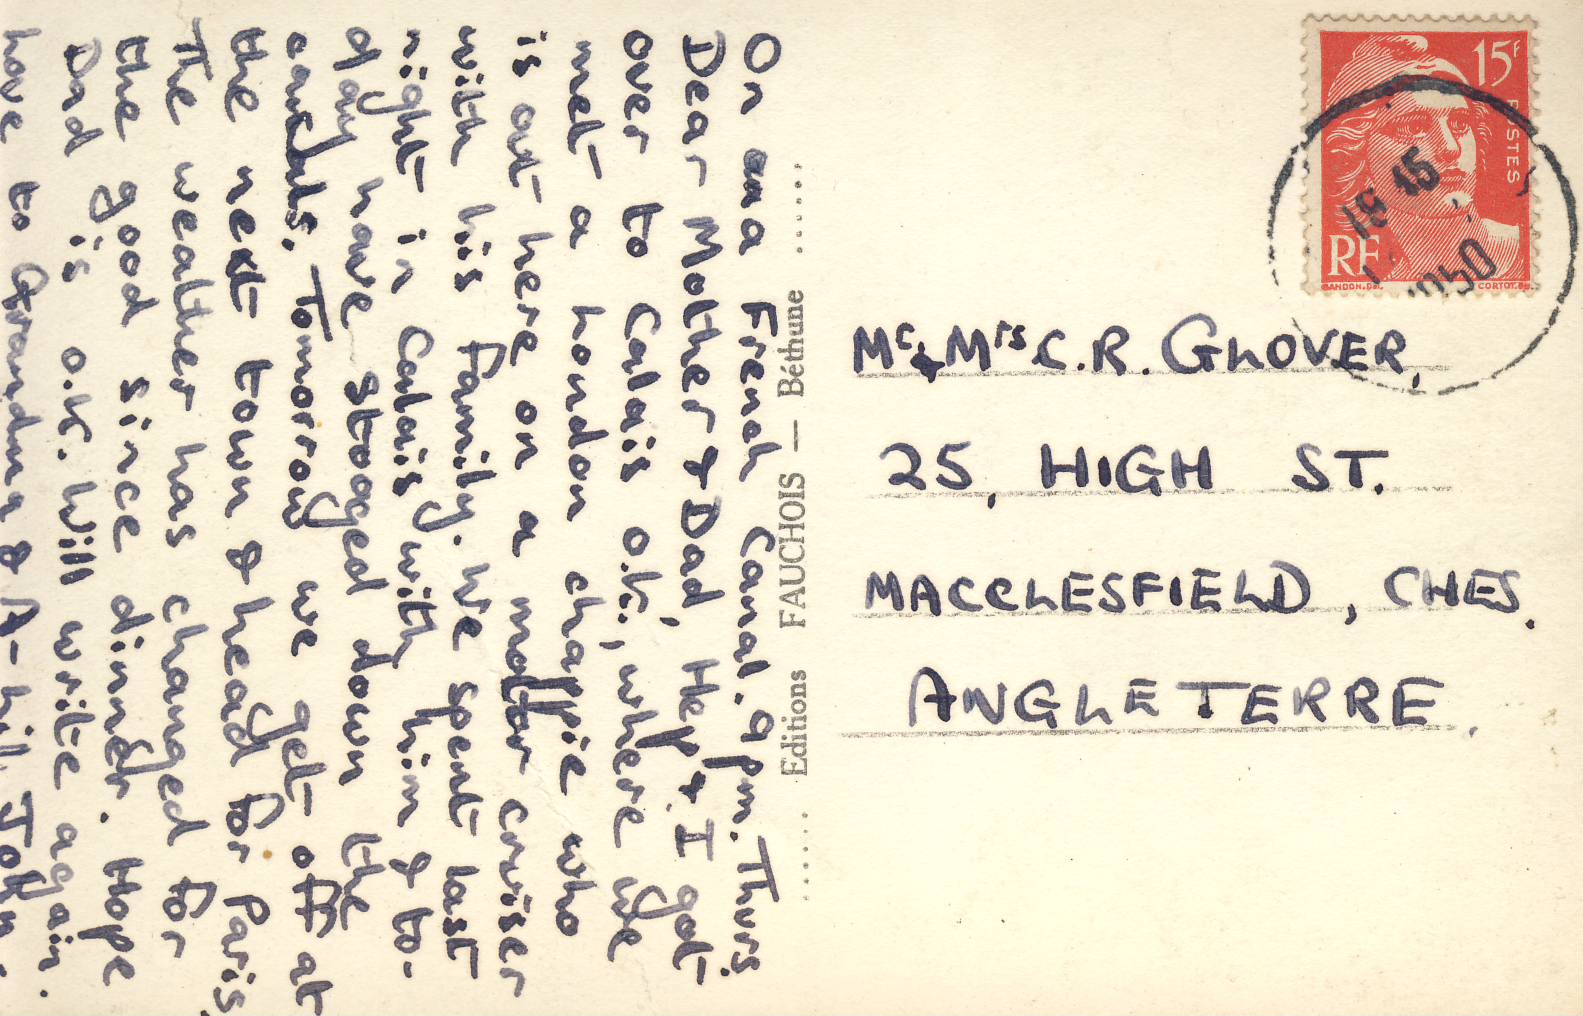 On ana French Canal. 9 pm. Thurs.
Dear Mother & Dad, Hep & I got
over to Calais o.k., where we
met a London chappie who
is out here on a motor cruiser
with his family. We spent last
night in Calais with him & to-
day have stooged down the
canals. Tomorrow we get off at
the next town & head for Paris.
The weather has changed for
the good since dinner. Hope
Dad is o.k. Will write again.
have to Grandma & A- John.
Editions FAUCHOIS — Béthune
15F
POSTES
RF
GANDON.DEL. CORTOT.SC.
18 45
1950
Mr & Mrs C. R. GLOVER,
25, HIGH ST.
MACCLESFIELD, CHES.
ANGLETERRE.